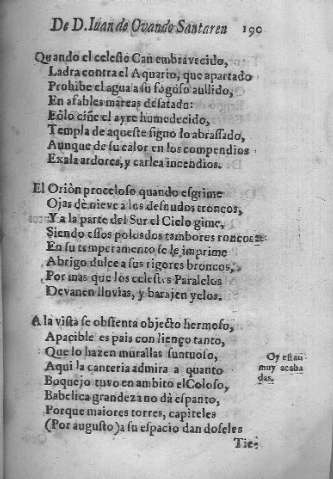 De D. Iuan de Ovando Santaren 190
Quando el celeste Can embravecido,
Ladra contra el Aquario, que apartado
Prohibe el agua a su fogoso aullido,
En afables mareas desatado:
Eôlo ciñe el ayre humedecido,
Templa de aqueste signo lo abrassado,
Aunque de su calor en los compendios
Exala ardores, y carlea incendios.
El Oriòn proceloso quando esgrime
Ojas de nieve a los desnudos troncos,
Y a la parte del Sur el Cielo gime,
Siendo essos polos dos tambores roncos:
En su temperamento se le imprime
Abrigo dulce a sus rigores broncos,
Por mas que los celestes Paralelos
Devanen lluvias, y barajen yelos.
A la vista se obstenta objecto hermoso,
Apacible es pais con liengo tanto,
Que lo hazen murallas suntuoso,
Aqui la canteria admira a quanto
Boquejo tuvo en ambito el Coloso,
Babelica grandeza no dà espanto,
Porque maiores torres, capiteles
(Por augusto) a su espacio dan doseles
Oy estàn
muy acaba
das.
Tie-